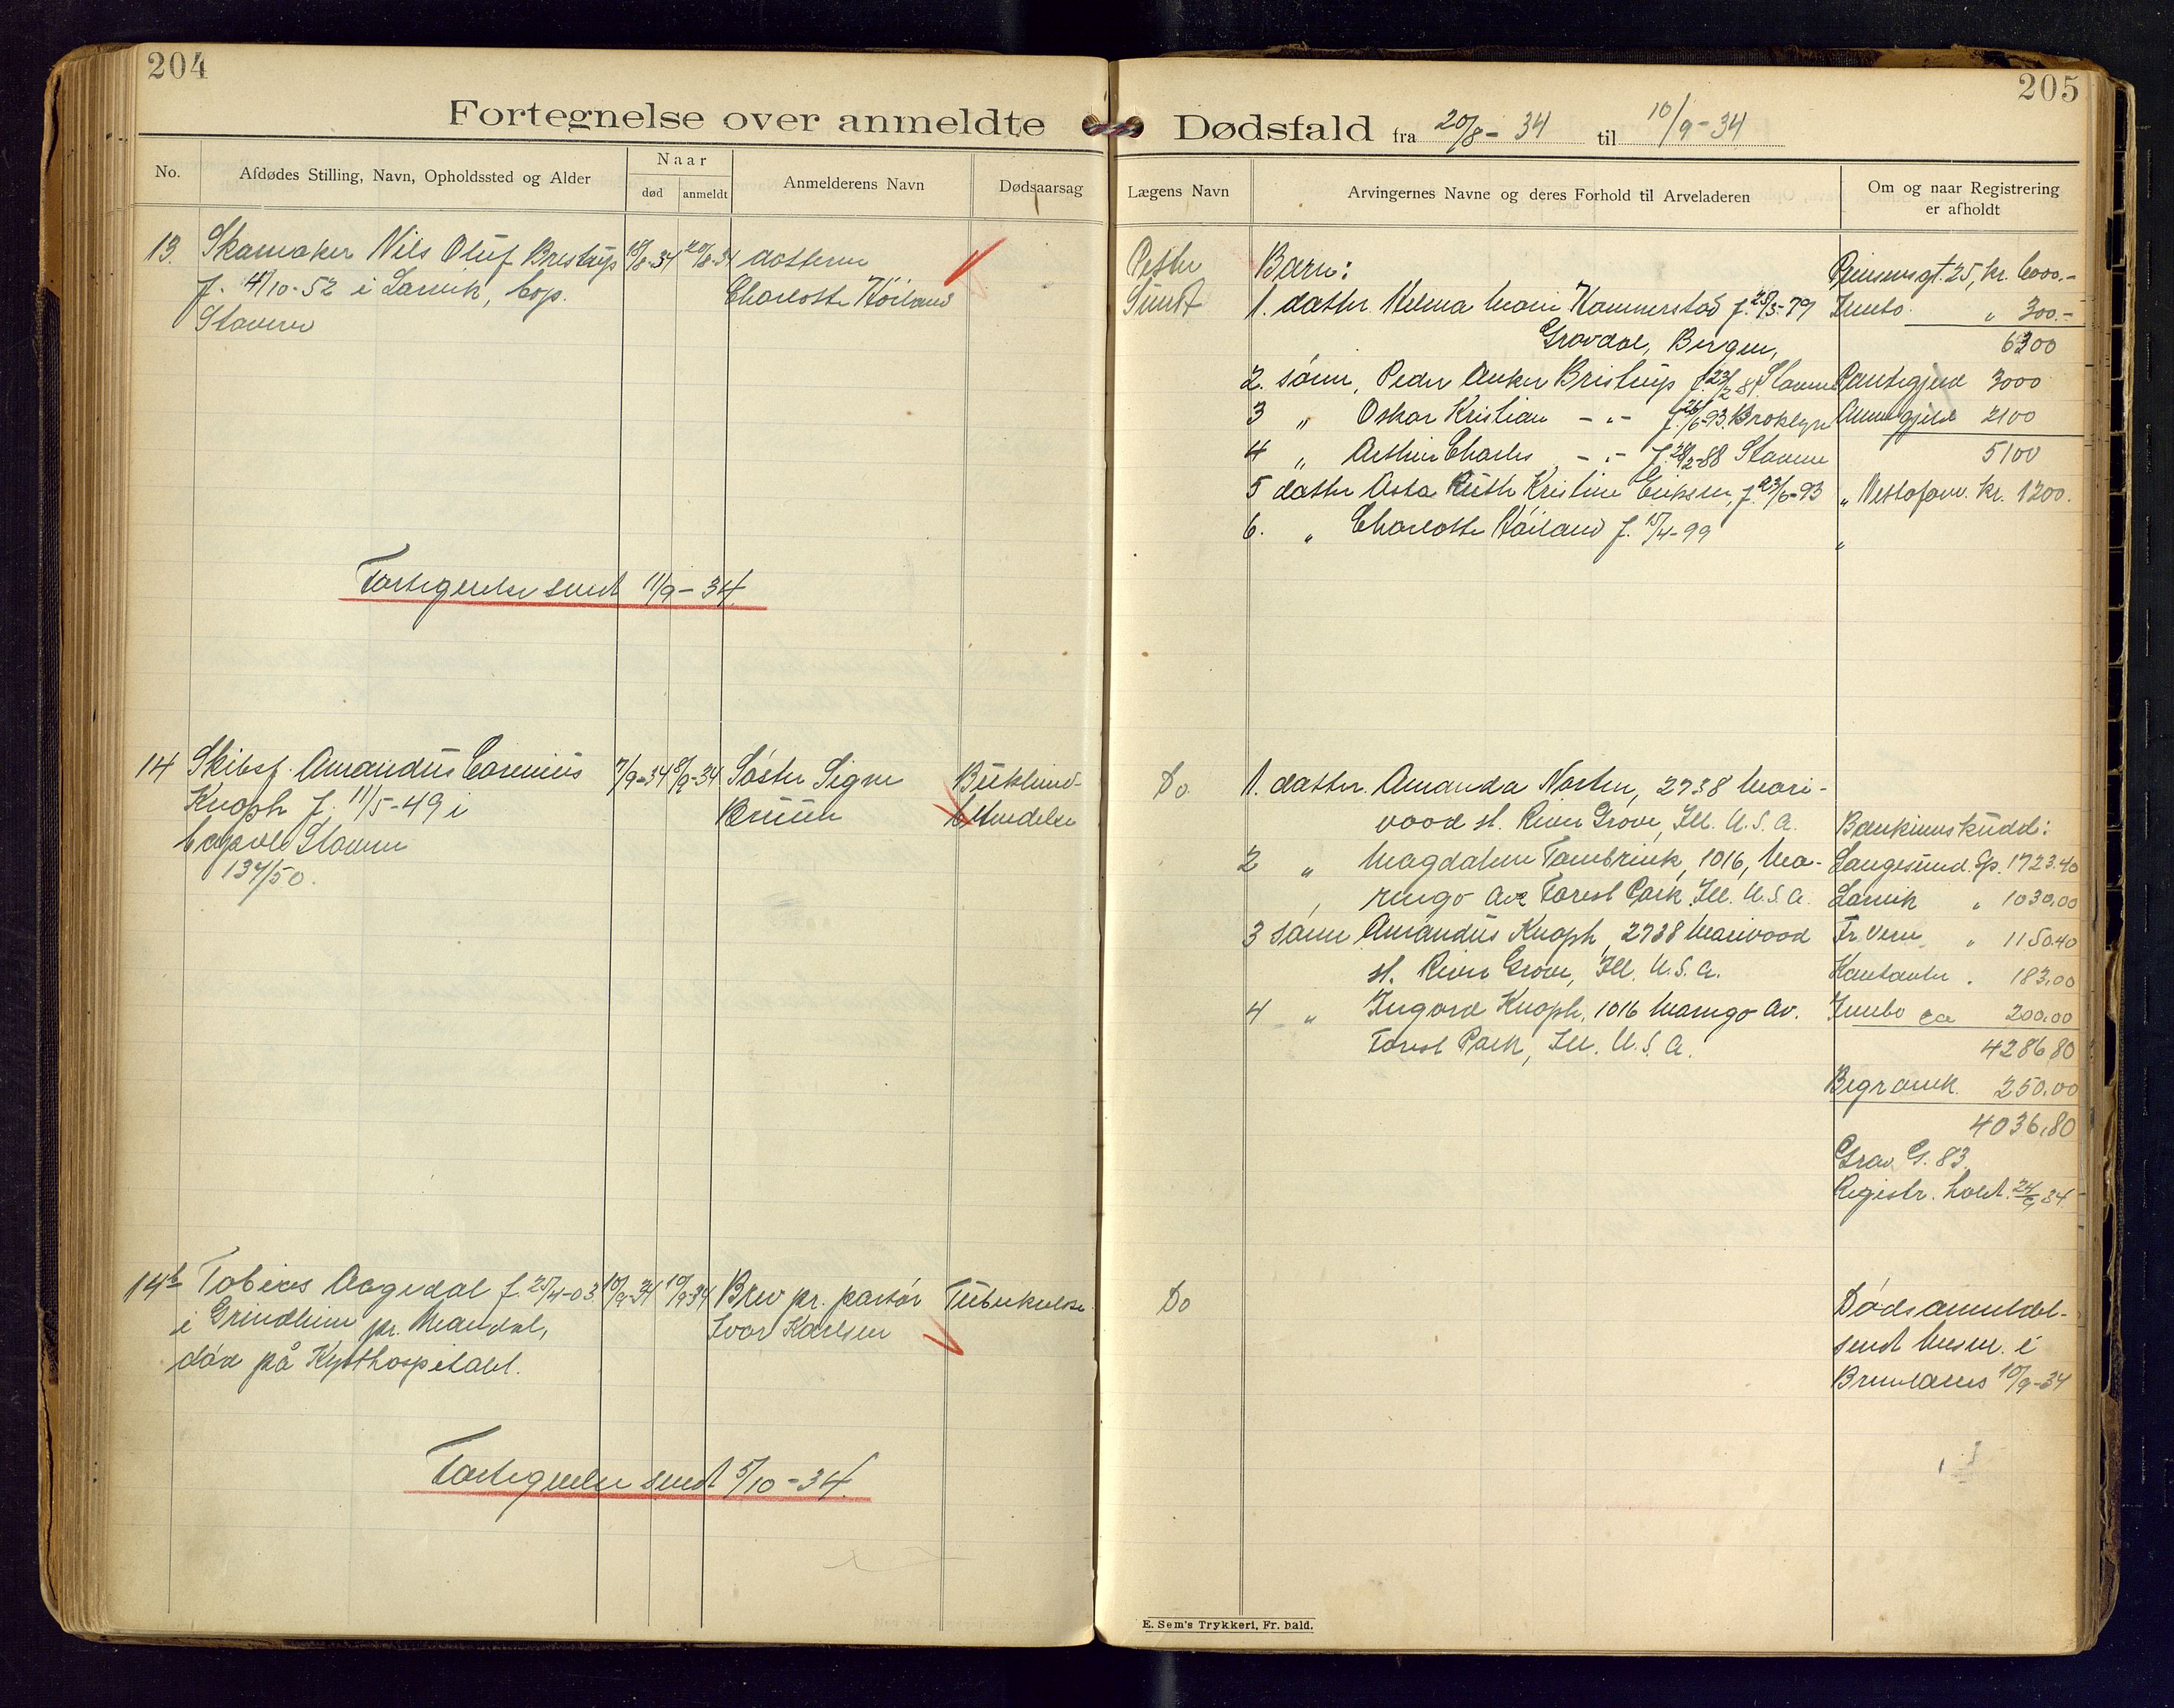 204
Fortegnelse over anmeldte
No.
Afdødes Stilling, Navn, Opholdssted og Alder
Naar
død
anmeldt
Anmelderens Navn
Dødsaarsag
13. Skomaker Nils Oluf Bristrup 18/8-34 20/8-34 datteren
f. 4/10-52 i Larvik, bop. Charlotte Höiland
Stavern
Fortegnelse sendt 11/9-34.
14 Skibsf. Amandus Corenius 7/9-34 8/9-34 Söster Signe Büklind-
Knoph f. 11/5-49 i Bruun betendelse
Stavern
137/50.
14b Tobias Aagedal f. 25/4-03 10/9-34 10/9-34 Brev pr. pastör Tuberkulose
i Grindheim pr. Mandal, Ivar Karlsen
död på Kysthospitalet.
Fortegnelse sendt 5/10-34.
205
Dødsfald fra 20/8-34 til 10/9-34
Lægens Navn
Arvingernes Navne og deres Forhold til Arveladeren
Om og naar Registrering
er afholdt
Petter Barn: gt. 25, kr. 6000.-
Sundt 1. datter Helma Marie Hammerstad f. 25/5-79 Innbo " 300.-
Gravdal, Bergen, 6300
2. sönn, Peder Anker Bristrup f. 23/2 81 Stavern Pantegjeld 3000
3 " Oskar Kristian -"- f. 26/6-93. Broklyn Annengjeld 2100
4 " Arthur Charles -"- f. 28/2-88 Stavern 5100
5 datter Asta Ruth Kristine Eriksen, f. 23/6-93 " Nettoform. kr. 1200.
6. " Charlotte Höiland f. 15/4-99 "
Do. 1. datter Amanda Norten, 2738 Mari-
vood st. River Grove, Ill. U.S.A. Bankinnskudd:
2 " Magdalene Tambrink, 1016, Ma- Langesund. Sp. 1723.40
rengo Ave Forest Park Ill. U.S.A. Larvik " 1030,00
3 sönn Amandus Knoph, 2738 Marivood Fr.vern " 1150.40
st. River Grove, Ill. U.S.A. Kontanter . 183,00
4 " Ingvard Knoph, 1016 Marengo Av. Innbo ca 200,00
Forest Park, Ill. U.S.A. 4286,80
Begravelsk. 250,00
4036,80
Grav G. 83.
Registr. holdt. 24/9 34
Do Dödsanmeldel-
sendt lensm. i
Brunlanes 10/9-34
E. Sem's Trykkeri, Fr. hald.